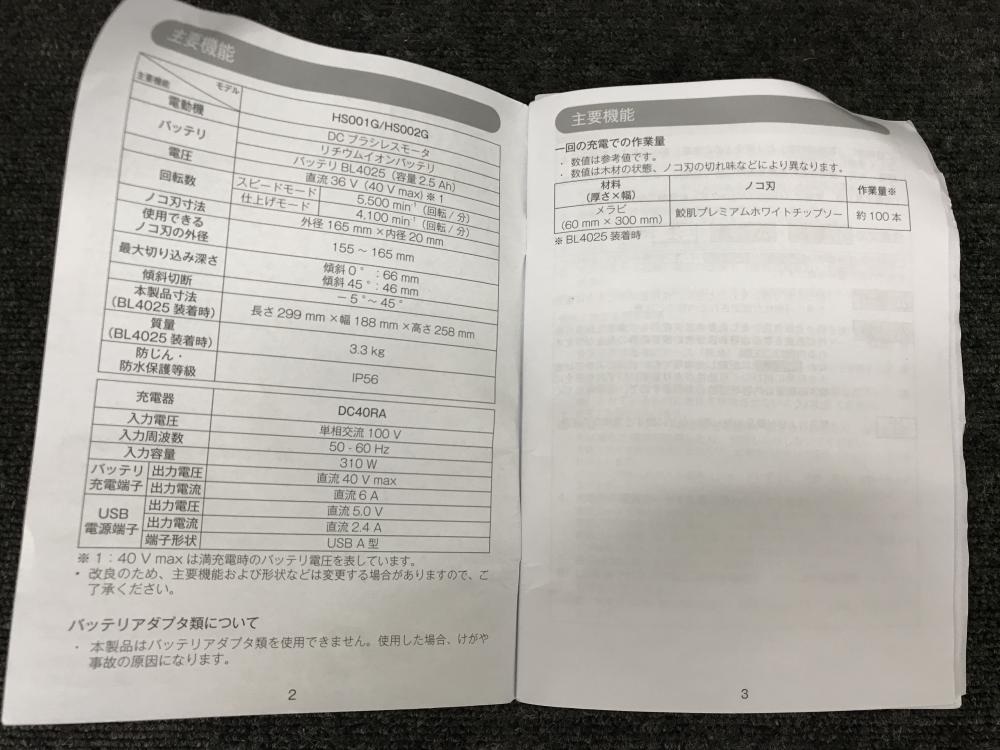 主要機能
主要機能 モデル HS001G/HS002G
電動機 DC ブラシレスモータ
バッテリ リチウムイオンバッテリ
バッテリ BL4025（容量 2.5 Ah）
電圧 直流 36 V（40 V max）※ 1
回転数 スピードモード 5,500 min⁻¹（回転 / 分）
仕上げモード 4,100 min⁻¹（回転 / 分）
ノコ刃寸法 外径 165 mm ×内径 20 mm
使用できる
ノコ刃の外径 155 ～ 165 mm
最大切り込み深さ 傾斜 0 °：66 mm
傾斜 45 °：46 mm
傾斜切断 － 5 °～ 45 °
本製品寸法
（BL4025 装着時） 長さ 299 mm ×幅 188 mm ×高さ 258 mm
質量
（BL4025 装着時） 3.3 kg
防じん・
防水保護等級 IP56
充電器 DC40RA
入力電圧 単相交流 100 V
入力周波数 50 - 60 Hz
入力容量 310 W
バッテリ
充電端子 出力電圧 直流 40 V max
出力電流 直流 6 A
USB
電源端子 出力電圧 直流 5.0 V
出力電流 直流 2.4 A
端子形状 USB A 型
※ 1：40 V max は満充電時のバッテリ電圧を表しています。
・ 改良のため、主要機能および形状などは変更する場合がありますので、ご
了承ください。
バッテリアダプタ類について
・ 本製品はバッテリアダプタ類を使用できません。使用した場合、けがや
事故の原因になります。
2
主要機能
一回の充電での作業量
・ 数値は参考値です。
・ 数値は木材の状態、ノコ刃の切れ味などにより異なります。
材料
（厚さ×幅） ノコ刃 作業量※
メラピ
（60 mm × 300 mm） 鮫肌プレミアムホワイトチップソー 約 100 本
※ BL4025 装着時
3